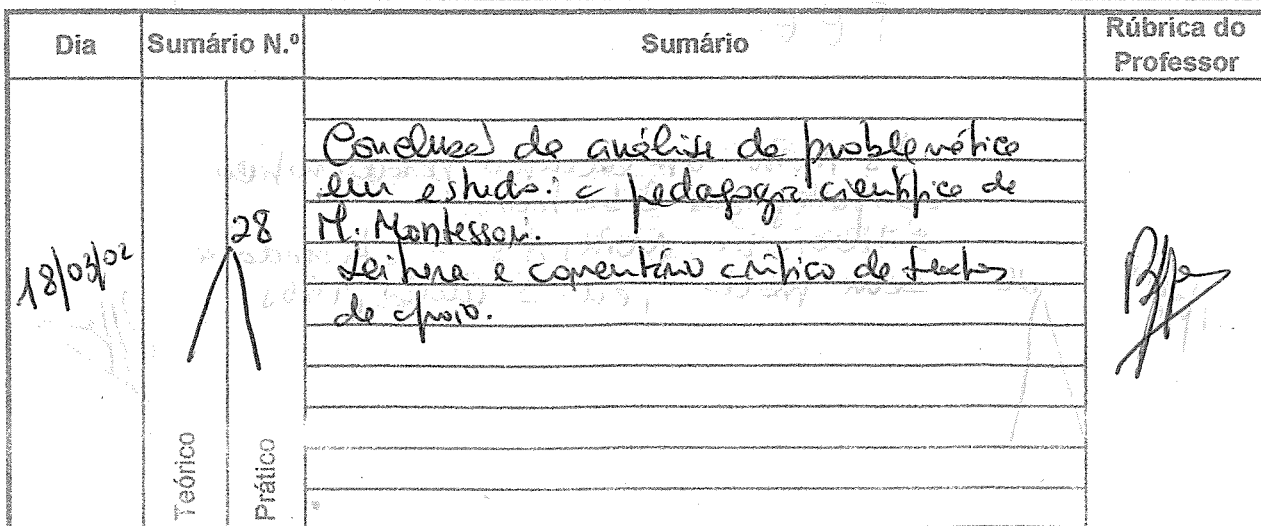 Dia
Sumário N.º
Sumário
Rúbrica do
Professor
18/03/02
28
Conclusão da análise da problemática
em estudo: a pedagogia científica de
M. Montessori.
Leitura e comentário crítico de textos
de apoio.
Teórico
Prático